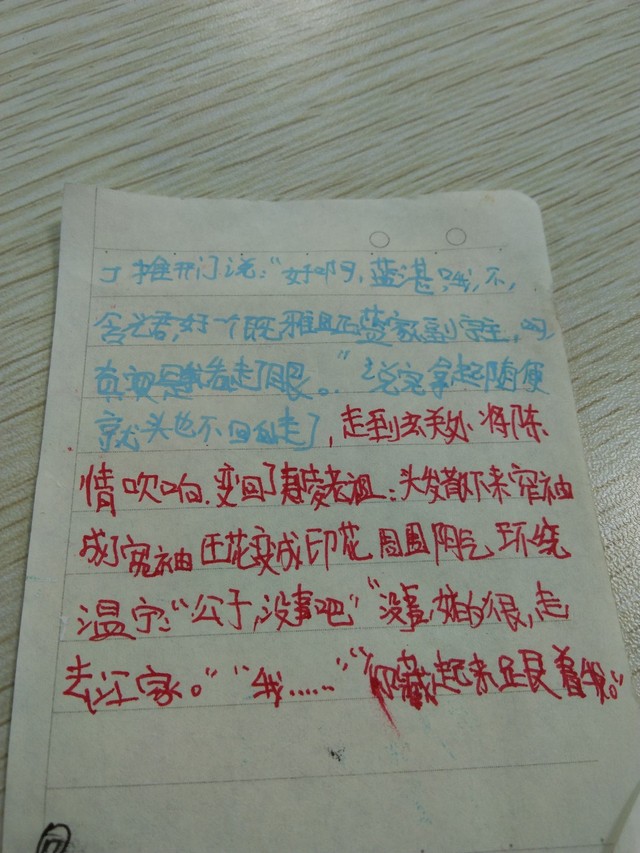 了推开门说:“好啊,蓝湛,我,不,
含光君,好一个既雅且正蓝家副宗主,
真是看走了眼。”说完拿起随便
就头也不回地走了,走到玄关处将陈
情吹响.变回了夷陵老祖:头发散下来窄袖
成了宽袖 压花变成印花 周围阴气 环绕
温宁:“公子,没事吧”“没事,好的很,走
去江家。”“我……”“你藏起来跟着我。”
17